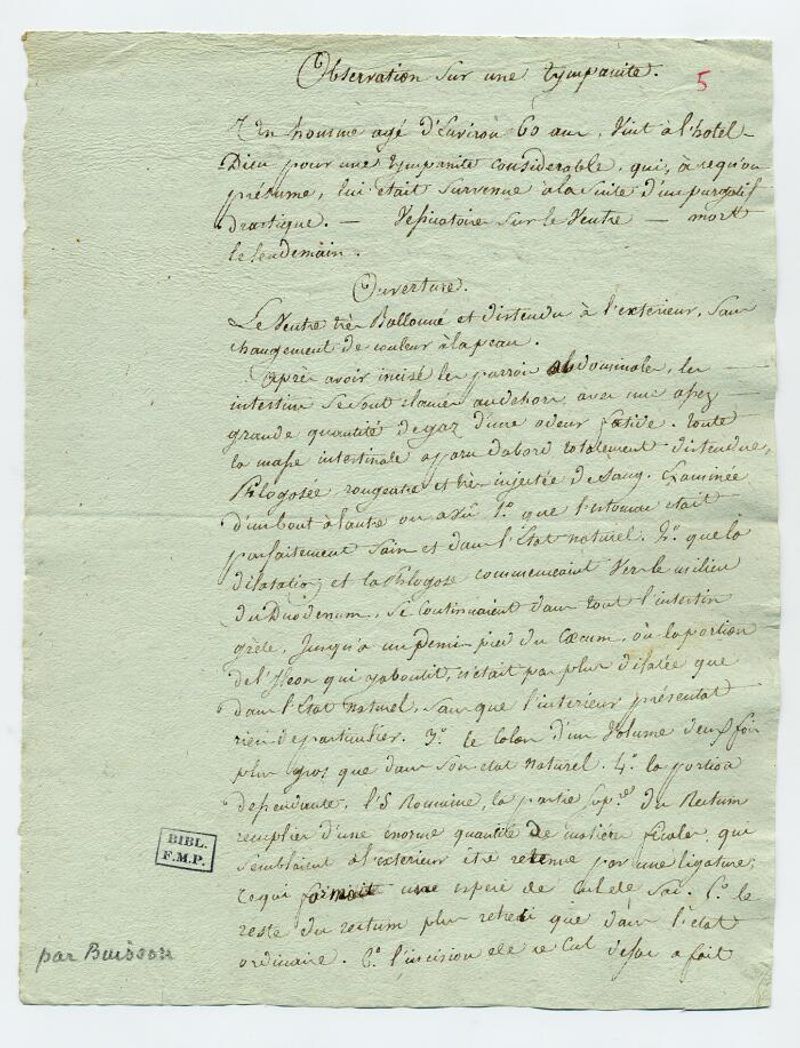 Observation sur une tympanite.
5
Un homme agé d'Environ 60 ans, vint à l'hotel-
Dieu pour une tympanite considerable, qui, à ce qu'on
présume, lui était survenue à la suite d'un purgatif
drastique. — Vesicatoire sur le Ventre — mort
le lendemain.
Ouverture.
Le Ventre très Ballonné et distendu à l'extérieur, sans
changement de couleur à la peau.
Après avoir incisé les parrois abdominales, les
intestins se sont élancés au dehors, avec une assez
grande quantité de gaz d'une odeur foetide. toute
la masse intestinale apparu d'abord totalement distendue,
Phlogosée rougeatre et très injectée de sang. Examinée
d'un bout à l'autre on a vu 1.° que l'estomac était
parfaitement sain et dans l'Etat naturel. 2.° que la
dilatation et la Phlogose commencaient vers le milieu
du Duodenum, se continuaient dans tout l'intestin
grêle, jusqu'à un demi-pied du Coecum, où la portion
de l'Ileon qui y aboutit, n'était pas plus dilatée que
dans l'Etat naturel, sans que l'interieur présentat
rien de particulier. 3.° le Colon d'un Volume deux fois
plus gros que dans son etat naturel. 4.° la portion
dependante, l'S Romaine, la partie sup.re du Rectum
remplies d'une enorme quantité de matières fécales, qui
semblaient à l'exterieur être retenue par une ligature,
ce qui formait une espece de Cul de sac. 5.° le
reste du rectum plus retreci que dans l'état
ordinaire. 6.° l'incision de ce Cul de sac a fait
BIBL.
F.M.P.
par Buisson